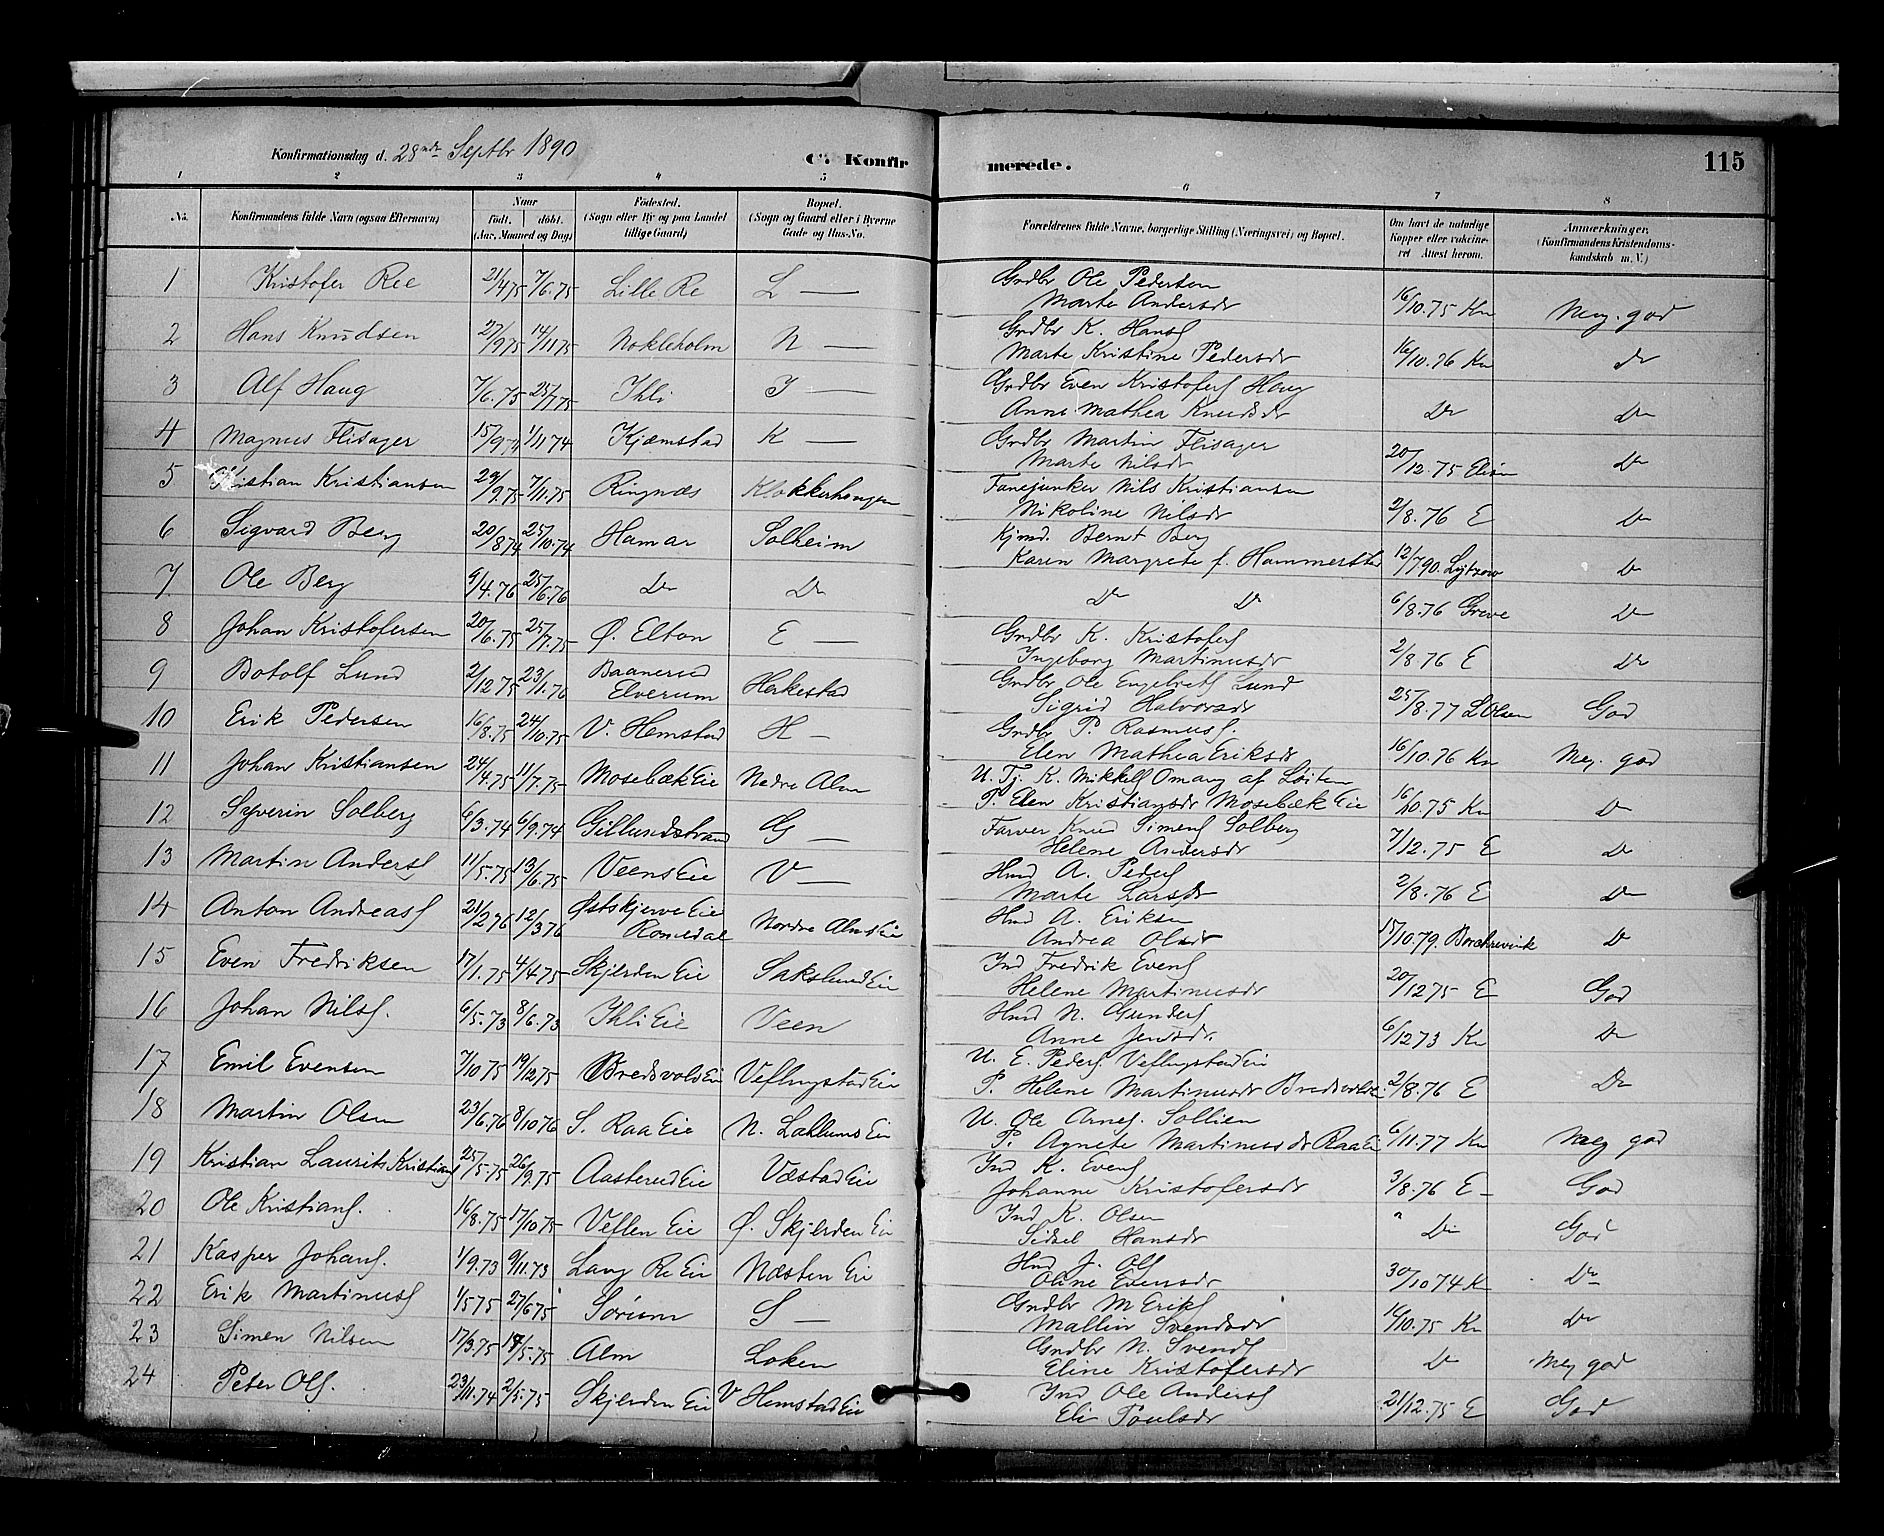 Konfirmationsdag d. 28nde Septbr 1890 C. Konfir merede. 115
1 2 3 4 5 6 7 8
No. Konfirmandens fulde Navn (ogsaa Efternavn) Naar født. døbt. (Aar, Maaned og Dag) Fødested. (Sogn eller By og paa Landet tillige Gaard) Bopæl. (Sogn og Gaard eller i Byerne Gade og Hus-No. Forældrenes fulde Navne, borgerlige Stilling (Næringsvei) og Bopæl. Om havt de naturlige Kopper eller vakcineret Attest herom. Anmærkninger. (Konfirmandens Kristendomskundskab m. V.)
1 Kristofer Ree 21/4 75 7/6.75 Lille Re L — Grdbr Ole Pedersen
Marte Andersdr 16/10.75 Kn Meg. god
2 Hans Knudsen 27/9 75 14/11 75 Nokleholm N — Grdbr K. Hansf
Marte Kristine Pedersdr 16/10.76 Kn Do
3 Alf Haug 7/6.75 25/7.75 Ihli I — Grdbr Even Kristoferf Haug
Anne Mathea Knudsdr Do Do
4 Magnus Flisager 15/9 74 1/11 74 Kjæmstad K — Grdbr Martin Flisager
Marte Nilsdr 20/12.75 Do
5 Kristian Kristiansen 29/9.75 7/11.75 Ringnæs Klokkerhaugen Fanejunker Nils Kristiansen
Nikoline Nilsdr 2/8.76 E Do
6 Sigvard Berg 20/8 74 25/10.74 Hamar Solheim Kjmd. Bernt Berg
Karen Margrete f. Hammerstad 12/7 90. Lytzow Do
7 Ole Berg 9/4.76 25/6.76 Do Do Do Do 6/8.76 Greve Do
8 Johan Kristofersen 20/6.75 25/7.75 Ø. Elton E — Grdbr K. Kristoferf
Ingeborg Martinusdr 2/8.76 E Do
9 Botolf Lund 2/12 75 23/1.76 Baanerud
Elverum Herkestad Grdbr Ole Engebretf Lund
Sigrid Halvorsdr 25/8.77 L Olsen God
10 Erik Pedersen 16/8.75 24/10.75 V. Hemstad H — Grdbr P. Rasmusf.
Elen Mathea Eriksdr 16/10.76 Kn Meg. god
11 Johan Kristiansen 24/4.75 11/7.75 Mosebæk Eie Nedre Alm U. Tj. K. Mikkelf Omang af Løiten
P. Elen Kristiansdr Mosebæk Eie 16/10.75 Kn Do
12 Syverin Solberg 6/3.74 6/9.74 Gillundstrand G — Farver Knud Simenf Solberg
Helene Andersdr 7/12.75 E Do
13 Martin Andersf 11/5.75 13/6.75 Veens Eie V — Hmd A. Pedersf
Marte Larsdr 2/8.76 E Do
14 Anton Andreasf 21/2 76 12/3 76 Østskjerve Eie
Romedal Nordre Alms Eie Hmd A. Eriksen
Andrea Olsdr 17/10.79. Borchrevink Do
15 Even Fredriksen 17/1.75 4/4.75 Skjerden Eie Sakslund Eie Ind Fredrik Evenf
Helene Martinusdr 20/12 75 E God
16 Johan Nilsf. 6/5.73 8/6.73 Ihli Eie Veen Hmd N. Gunderf
Anne Jensdr. 6/12 73 Kn Do
17 Emil Evensen 7/10 75 19/12 75 Bredsvold Eie Veflingstad Eie U. E. Pedersf. Veflingstad Eie
P. Helene Martinusdr Bredsvold Eie 2/8.76 E Do
18 Martin Olsen 23/6.76 8/10 76 S. Raa Eie N. Løklums Eie U. Ole Arnef. Sollien
P. Agnete Martinusdr Raa Eie 6/11.77 Kn Meg god
19 Kristian Laurits Kristiansf 25/5.75 26/9.75 Aasterud Eie Væstad Eie Ind K. Evenf
Johanne Kristofersdr 3/8.76 E — God
20 Ole Kristianf. 16/8.75 17/10 75 Veflen Eie Ø. Skjerden Eie Ind K. Olsen
Sidsel Hansdr " Do God
21 Kasper Johanf. 1/9.73 9/11.73 Lang Re Eie Næsten Eie Hmd J. Olf
Oline Evensdr 30/10 74 K Do
22 Erik Martinusf 1/5 75 27/6 75 Sørum S — Grdbr M Erikf
Mallin Svendsdr 16/10.75 Kn Do
23 Simen Nilsen 17/3.75 17/5.75 Alm Løken Grdbr N. Svendf
Eline Kristofersdr Do Meg god
24 Peter Olf. 23/11.74 2/5.75 Skjerden Eie V Hemstad Eie Ind Ole Andersf
Eli Poulsdr 21/12.75 E God